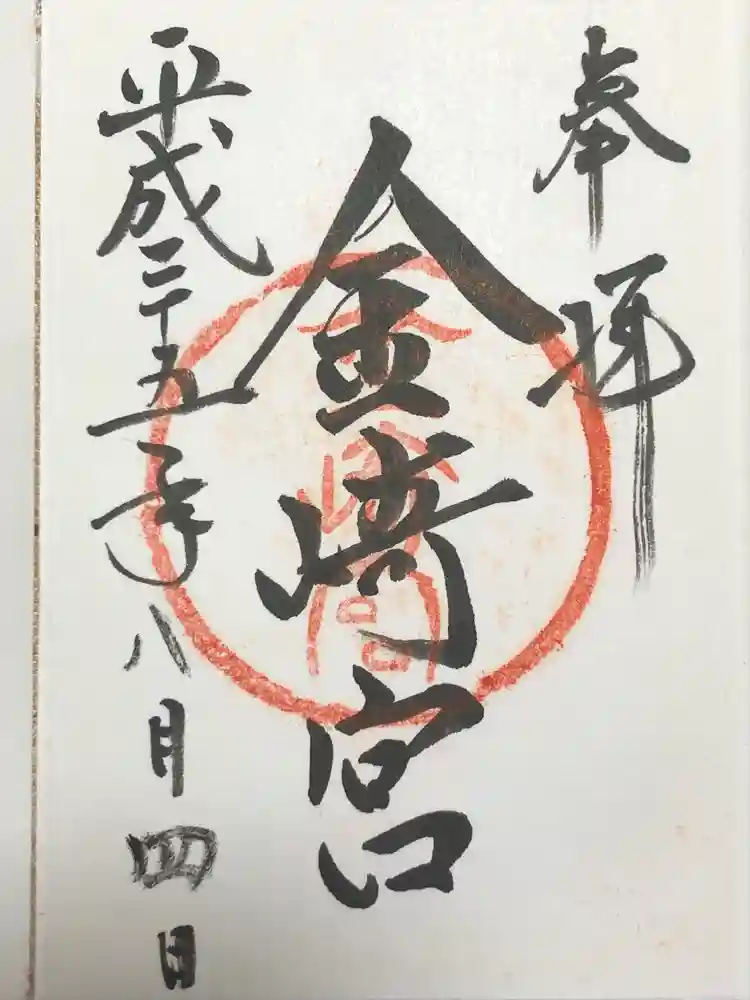 奉拝
金崎宮
平成二十五年八月四日